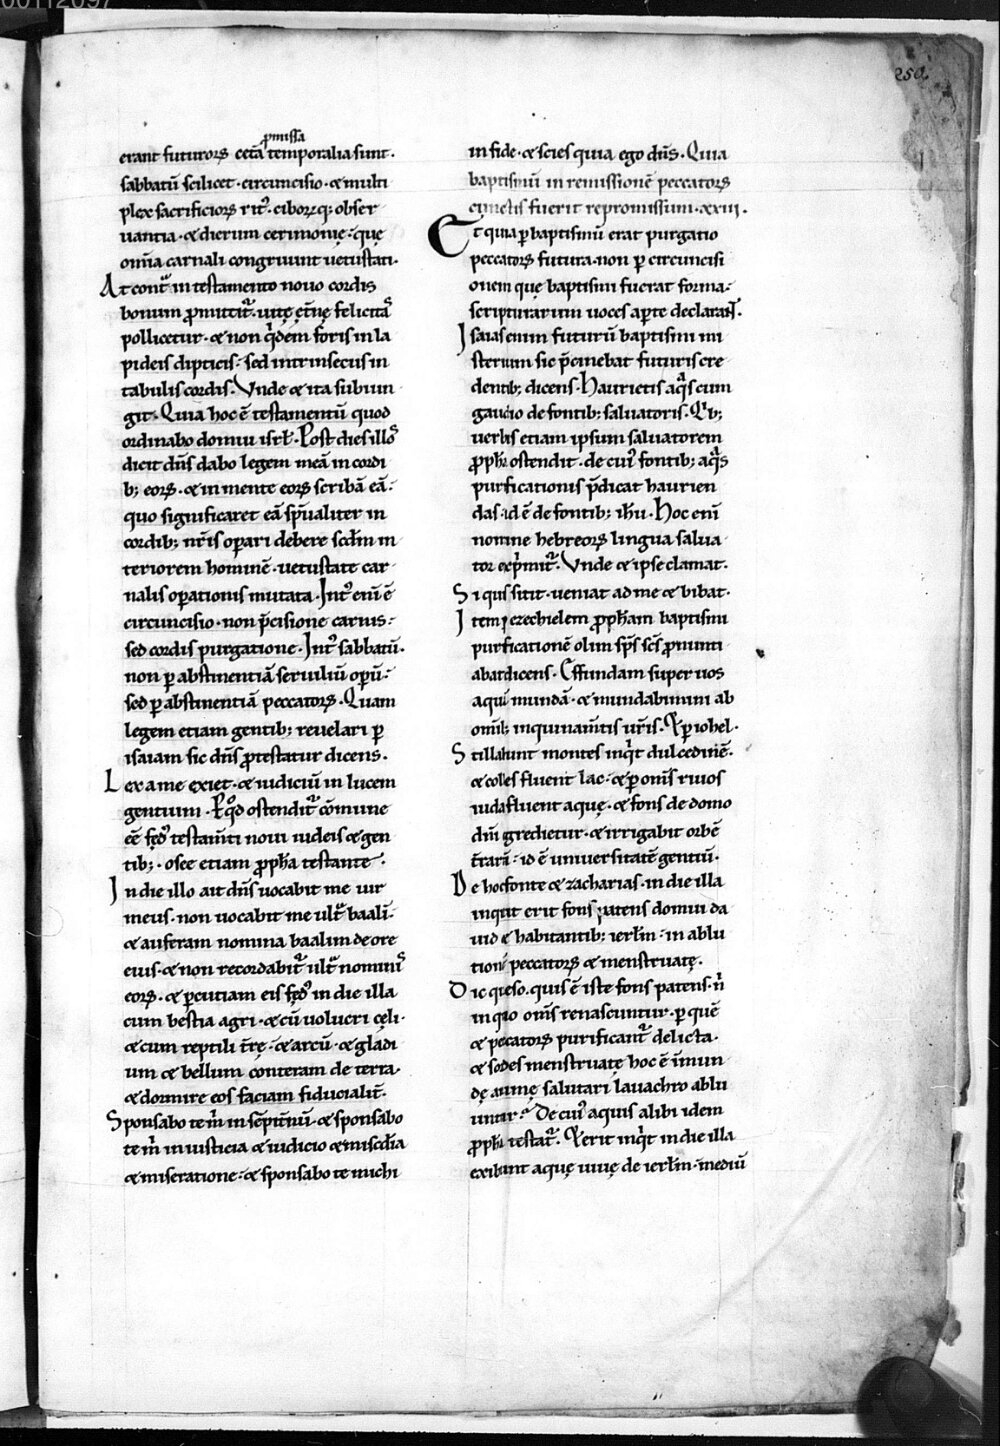 00112697
250.
p̄missa
erant futuroꝝ cetā temporalia sunt.
sabbatū scilicet. circuncisio. & multi
plex sacrificioꝝ rit᷒. ciboꝝq; obser
uantia. & dierum cerimonię. quę
om̄ia carnali congruunt uetustati.
At cont̄ in testamento nouo cordis
bonum ꝓmittit᷑. uitę et̄nę felicita᷒
pollicetur. & non q̇dem foris in la
pideis dipticis. sed intrinsecus in
tabulis cordis. Vnde & ita subiun
git. Quia hoc ē testamentū quod
ordinabo domui isrł. Post dies illo᷒
dicit dn̄s dabo legem meā in cordi
b; eoꝝ. & in mente eoꝝ scribā eā.
quo significaret eā sp̄ualiter in
cordib; nr̄is oꝑari debere scd̄m in
teriorem hominē. uetustate car
nalis oꝑationis mutata. Int᷒ eni ē
circuncisio. non p̄cisione carnis.
sed cordis purgatione. Int᷒ sabbatū.
non ꝑ abstinentiā seruiliū oꝑū.
sed ꝑ abstinentiā peccatoꝝ. Quam
legem etiam gentib; reuelari ꝑ
isaiam sic dn̄s ꝓtestatur dicens.
Lex a me exiet. & iudiciū in lucem
gentium. P qd̄ ostendit᷑ cōmune
eē fęd᷒ testam̄ti noui iudeis & gen
tib;. osee etiam ꝓpħa testante.
In die illo ait dn̄s uocabit me uir
meus. non uocabit me ult̄ baali.
& auferam nomina baalim de ore
eius. & non recordabit᷑ ult̄ nomini᷒
eoꝝ. & ꝑcutiam eis fęd᷒ in die illa
cum bestia agri. & cū uolucri cęli.
& cum reptili t̄rę. & arcū. & gladi
um & bellum conteram de terra.
& dormire eos faciam fiducialit̄.
Sponsabo te m̄ in sēpit̄nū. & sponsabo
te m̄ in iusticia & iudicio & miscd̄ia
& miseratione. & sponsabo te michi
in fide. & scies quia ego dn̄s. Quia
baptismū in remissionē peccatoꝝ
cunctis fuerit repromissum. xxiii.
Et quia ꝑ baptismū erat purgatio
peccatoꝝ futura. non ꝑ circuncisi
onem quę baptismi fuerat forma.
scripturarum uoces aꝑte declarant̄.
Isaias enim futurū baptismi mi
sterium sic p̄cinebat futuris cre
dentib; dicens. Haurietis aq̄s cum
gaudio de fontib; saluatoris. Q'b;
uerbis etiam ipsum saluatorem
ꝓpħa ostendit. de cui᷒ fontib; aq̄s
purificationis p̄dicat haurien
das. id ē de fontib; ih̄u. Hoc eni
nomine hebreoꝝ lingua salua
tor exp̄mit᷑. Vnde & ipse clamat.
Si quis sitit. ueniat ad me & bibat.
Item ezechielem ꝓpħam baptismi
purificationē olim sp̄s sc̄s ꝓnunti
abat dicens. Effundam super uos
aquā mundā. & mundabimini ab
omīb; inquinam̄tis ur̄is. & ꝑ iohel.
Stillabunt montes inq̇t dulcedinē.
& colles fluent lac. & ꝑ om̄s riuos
iuda fluent aquę. & fons de domo
dn̄i gredietur. & irrigabit orbē
t̄rarū. id ē uniuersitatē gentiū.
De hoc fonte & zacharias. in die illa
inquit erit fons patens domui da
uid & habitantib; ierłm. in ablu
tionē peccatoꝝ & menstruatę.
Dic quęso. quis ē iste fons patens. n̄
in quo om̄s renascuntur. ꝑ quē
& peccatoꝝ purificant᷑ delicta.
& sodes menstruatę hoc ē īmun
dę animę salutari lauachro ablu
untur. De cui᷒ aquis alibi idem
ꝓpħa testat᷑. & erit inq̇t in die illa
exibunt aquę uiuę de ierłm. mediū